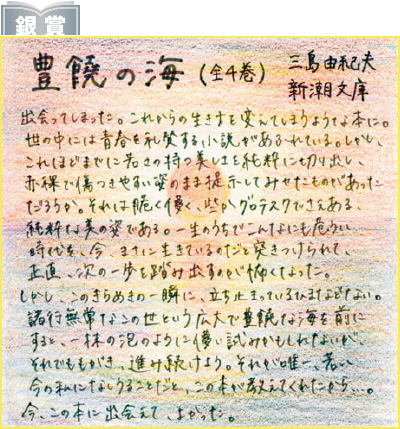 銀賞
豊饒の海（全4巻）
三島由紀夫
新潮文庫
出会ってしまった。これからの生き方を変えてしまうような本に。
世の中には青春を礼賛する小説があふれている。しかし、
これほどまでに若さの持つ美しさを純粋に切り出し、
赤裸で傷つきやすい姿のまま提示してみせたものがあった
だろうか。それは脆く儚く、些かグロテスクでさえある、
純粋な美の姿である。一生のうちでこんなにも危うい
時代を、今、まさに生きているのだと突きつけられて、
正直、次の一歩を踏み出すのが怖くなった。
しかし、このきらめきの一瞬に、立ち止まっているひまなどない。
諸行無常なこの世という広大で豊饒な海を前に
すると、一抹の泡のように儚い試みかもしれないが、
それでももがき、進み続けよう。それが唯一、若い
今の私になしうることだと、この本が教えてくれたから…。
今、この本に出会えて、よかった。